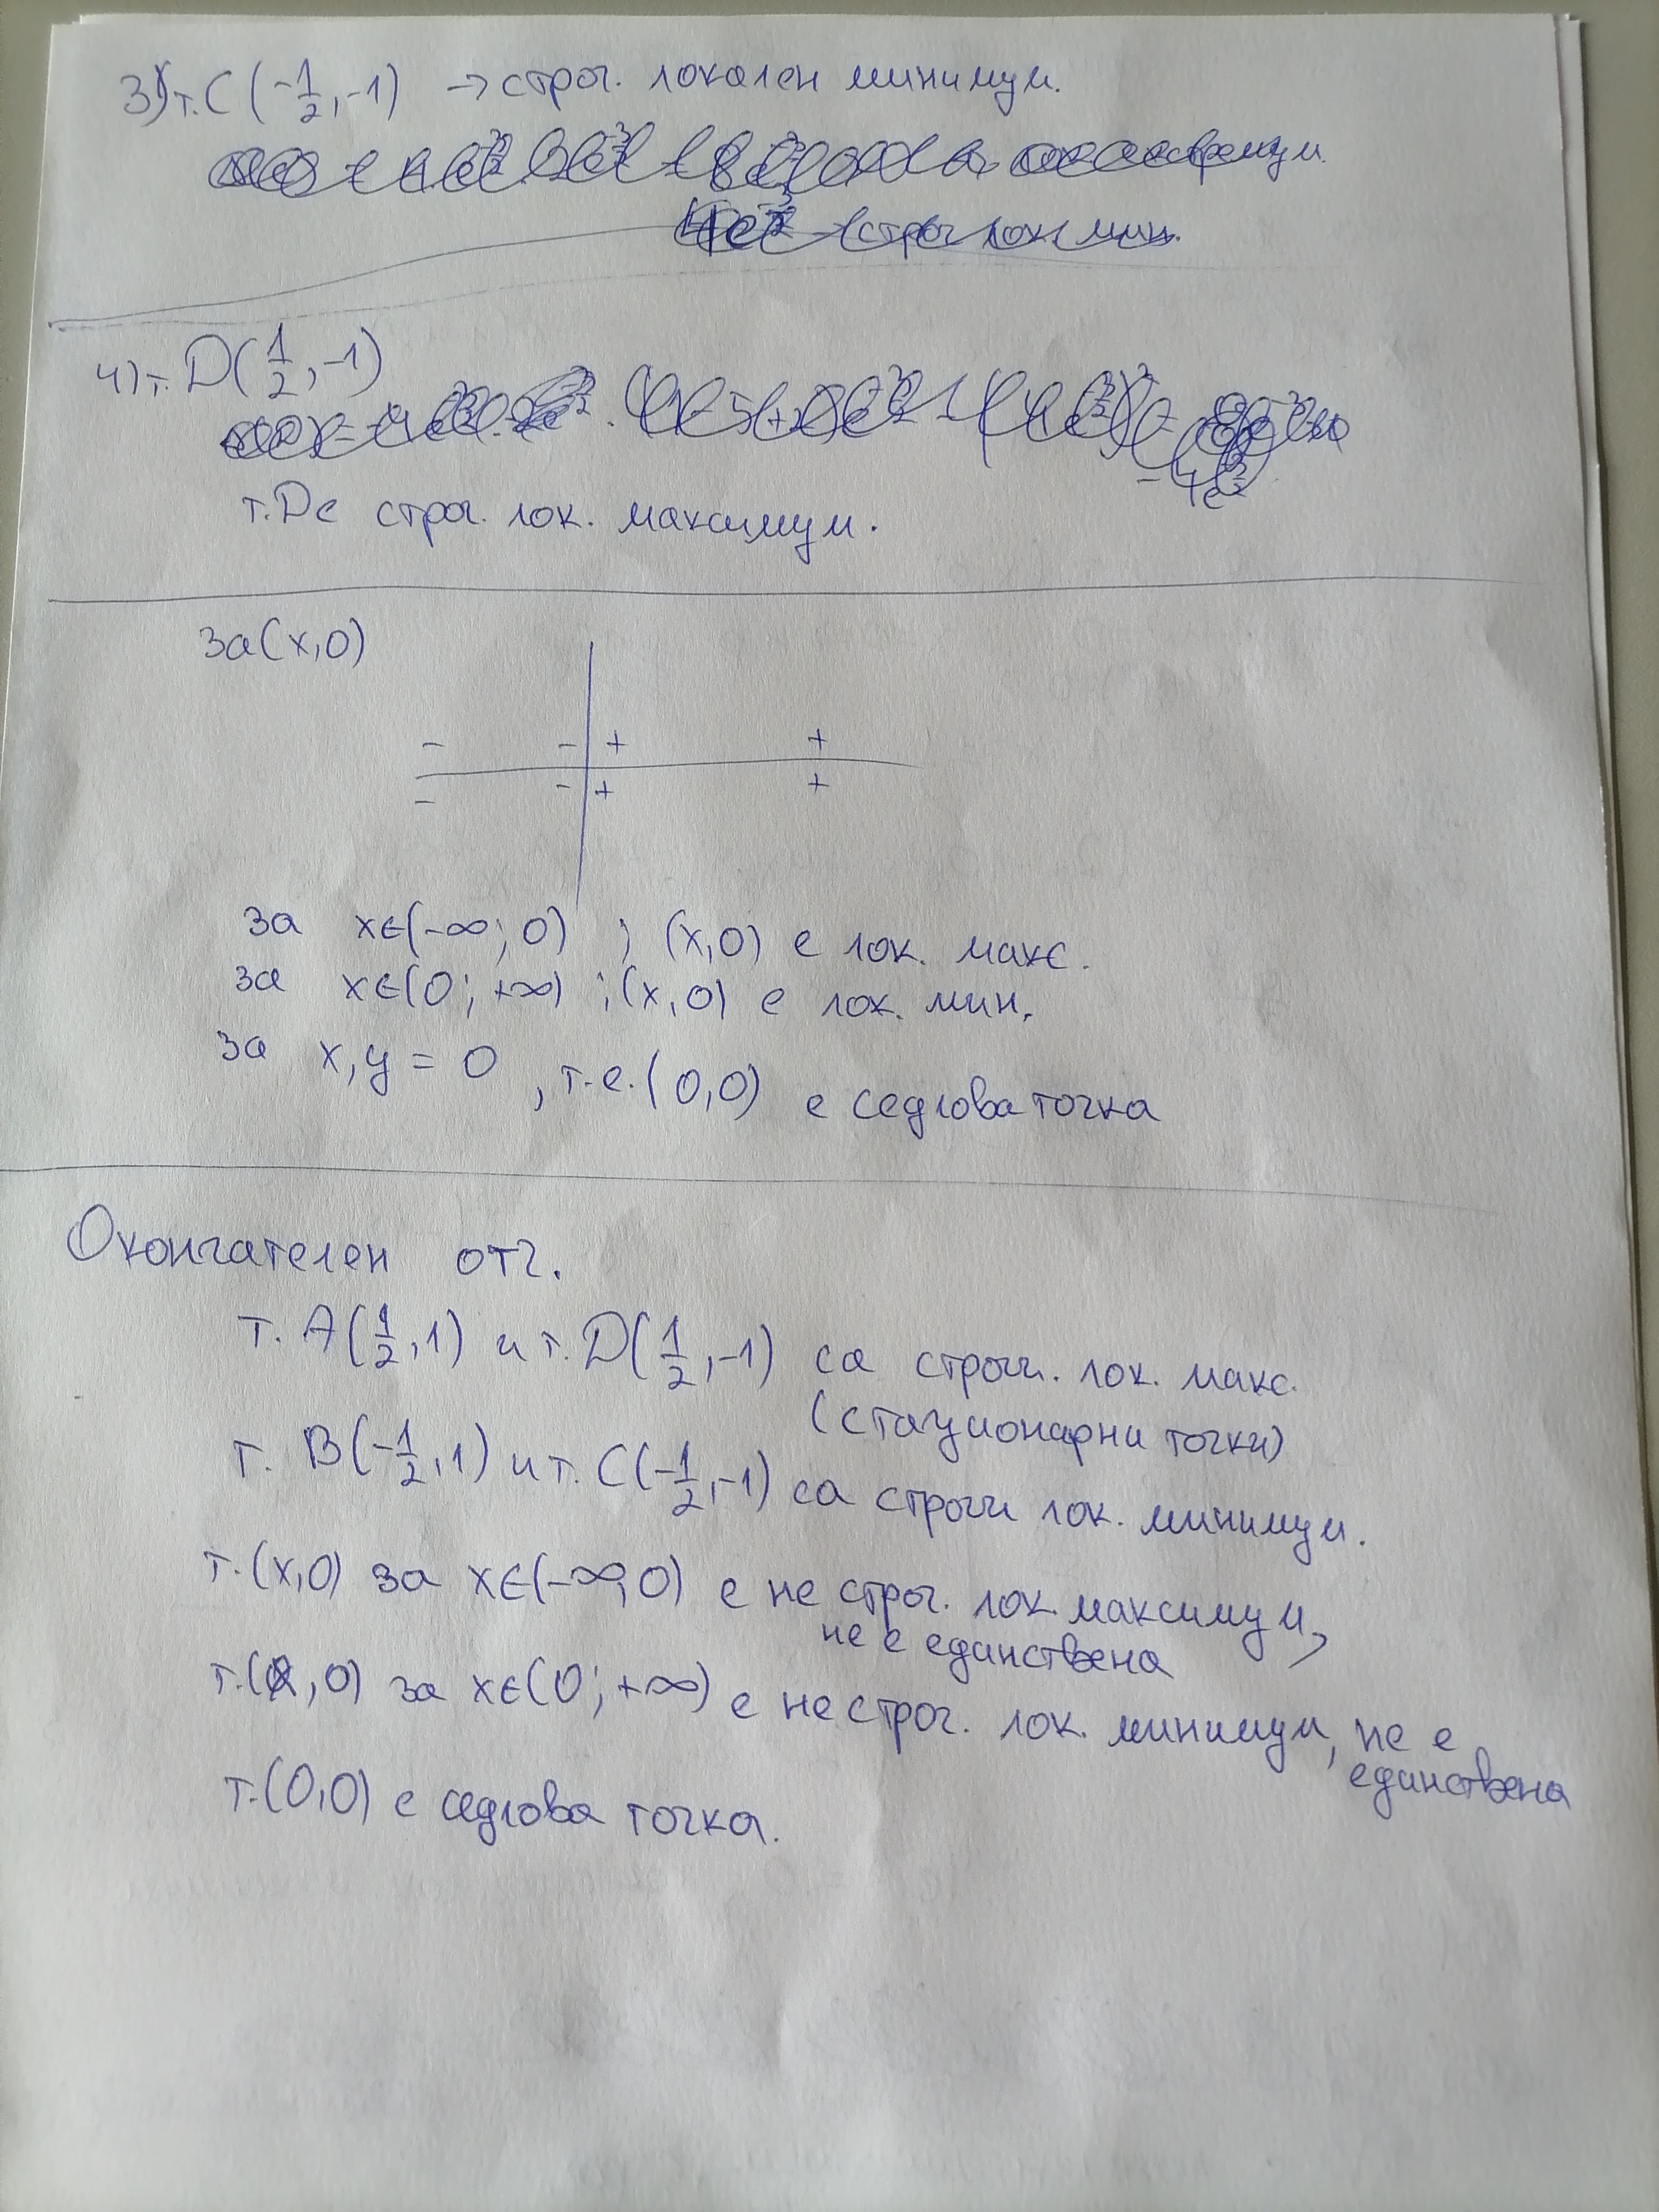 3) т. C (-1/2, -1) → строг. локален минимум.
строг лок. мин.
4) т. D (1/2, -1)
-4e
т. D е строг. лок. максимум.
За (x, 0)
- - + +
- - + +
за x∈(-∞; 0) ; (x, 0) е лок. макс.
за x∈(0; +∞) ; (x, 0) е лок. мин.
за x, y = 0 , т.е. (0, 0) е седлова точка
Окончателен отг.
т. A (1/2, 1) и т. D (1/2, -1) са строги. лок. макс.
(стационарни точки)
т. B (-1/2, 1) и т. C (-1/2, -1) са строги лок. минимум.
т. (x, 0) за x∈(-∞; 0) е не строг. лок. максимум,
не е единствена
т. (x, 0) за x∈(0; +∞) е не строг. лок. минимум, не е
единствена
т. (0, 0) е седлова точка.